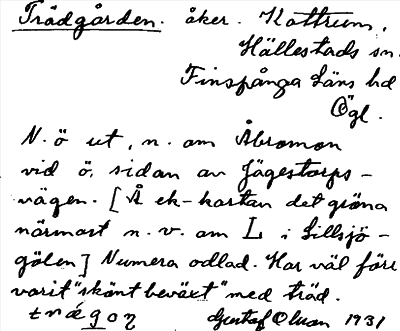 Trädgården. åker. Kattrum,
Hällestads sn.
Finspånga läns hd
Ögl.
N. ö ut, n. om Åbromon
vid ö. sidan av Jägestorps-
vägen. [Å ek-kartan det gröna
närmast n. v. om L i Lillsjö-
gölen] Numera odlad. Har väl förr
varit "skönt beväxt" med träd.
Gustaf Olson 1931